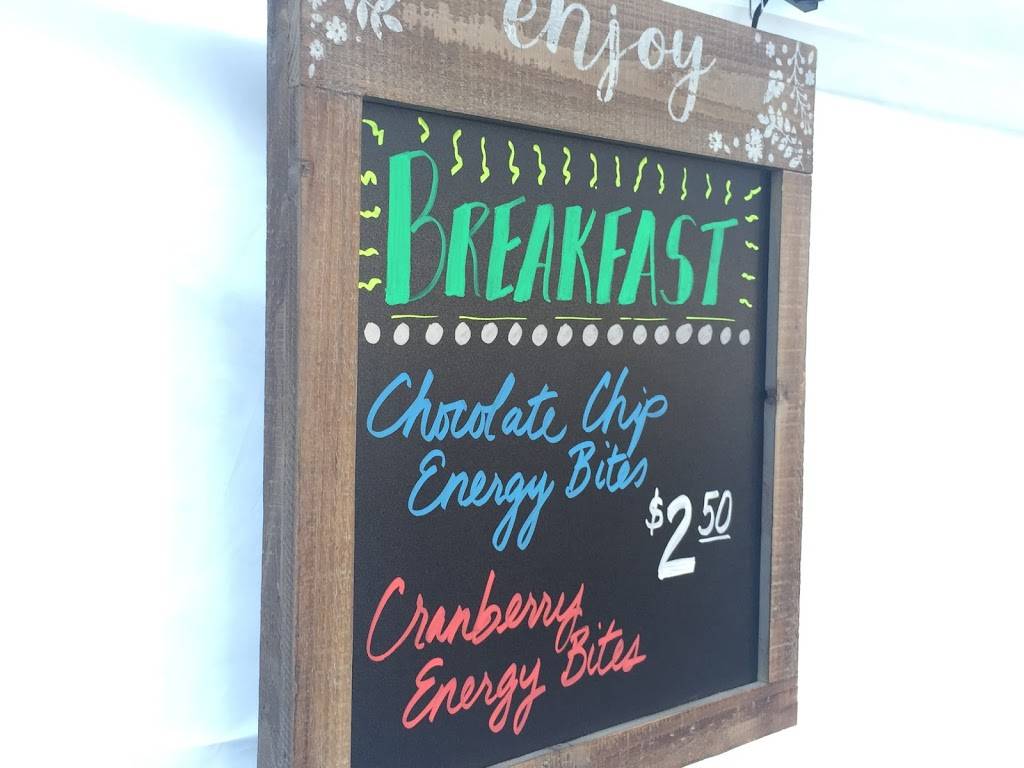 enjoy
BREAKFAST
Chocolate Chip
Energy Bites
$2.50
Cranberry
Energy Bites